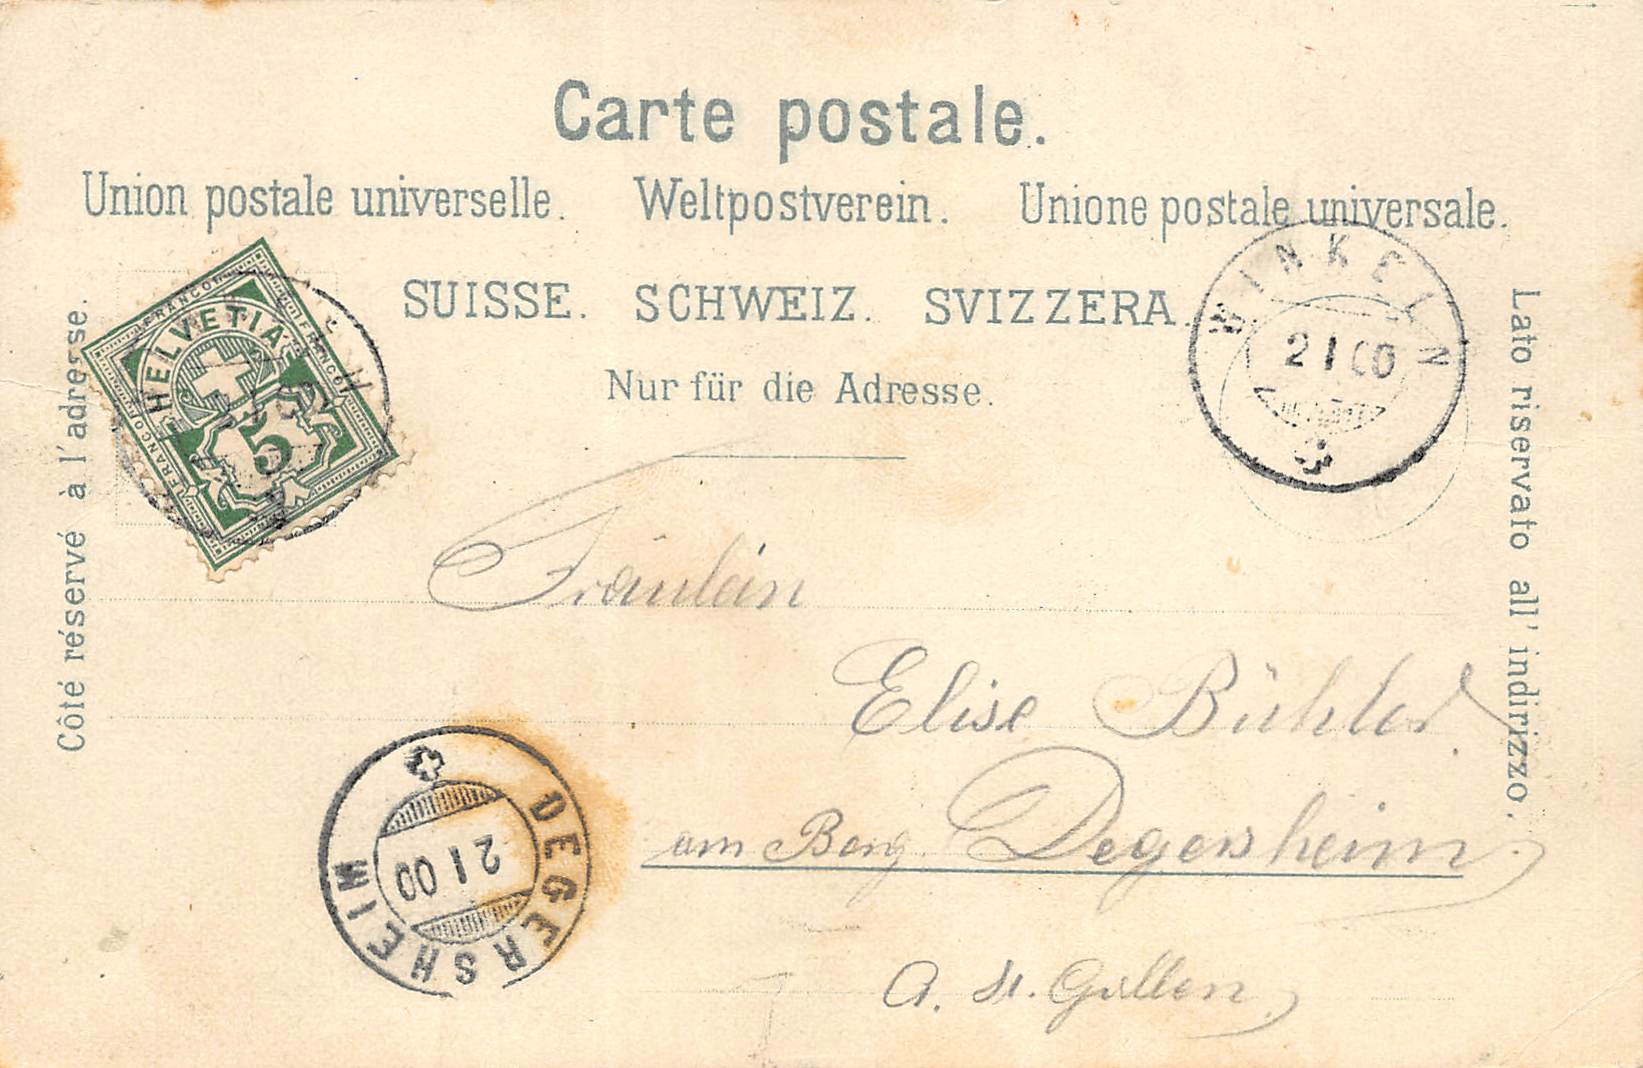 Carte postale.
Union postale universelle. Weltpostverein. Unione postale universale.
SUISSE. SCHWEIZ. SVIZZERA.
Nur für die Adresse.
Côté réservé à l'adresse.
Lato riservato all' indirizzo.
FRANCO FRANCO FRANCO
HELVETIA
5
WINKELN
2 I 00
Fräulein
Elise Bühler
am Berg. Degersheim.
A. St. Gallen.
DEGERSHEIM
2 I 00